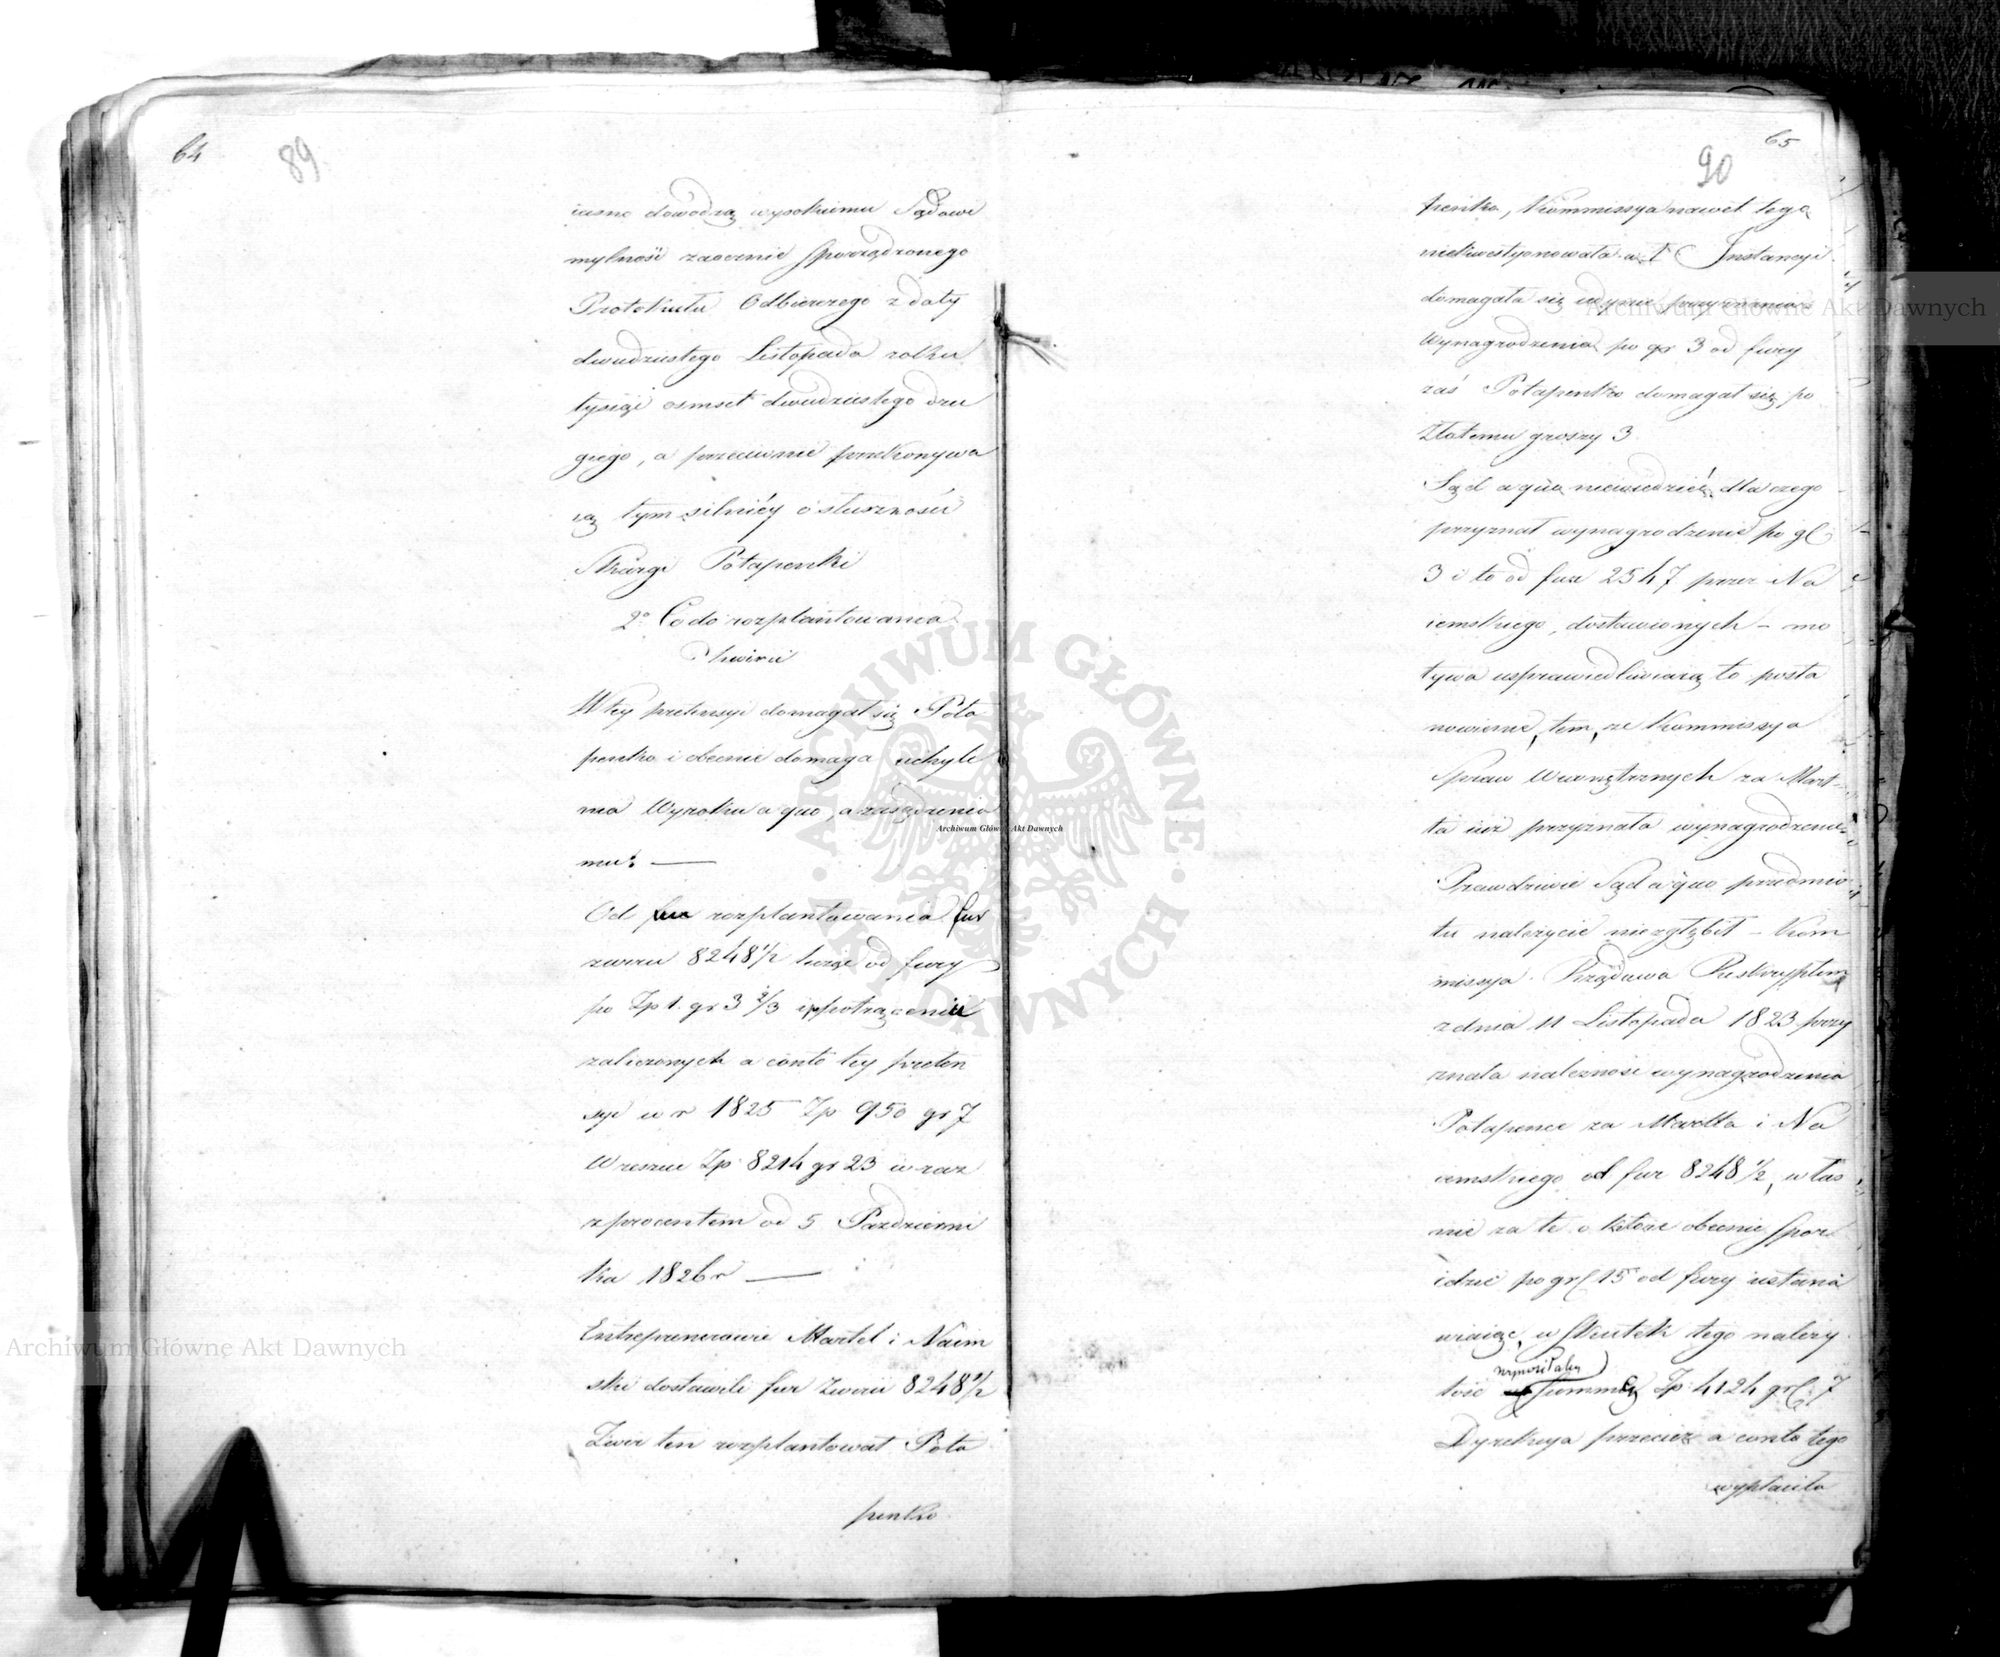 64
89
iasno dowodzą wysokiemu Sądowi
mylność zaocznie sporządzonego
Protokułu Odbiorczego z daty
dwudziestego Listopada rokku
tysiąc osmset dwudziestego dru
giego, a przeciwnie przekonywa
ią tym silniéy o słuszności
Skargi Potapenki
2° Co do rozplantowania
Żwiru
W tey pretensyi domagał się Pota
penko i obecnie domaga uchyle
nia Wyroku a quo, a zasądzenia
mu: —
Od rozplantowania fur
zwiru 8248 1/2 licząc od fury
po Zp 1. gr 3 2/3 i potrąceniu
zaliczonych a conto tey preten
syi w r 1825 Zp 950 gr 7
W reszcie Zp 8214 gr 23 wraz
z procentem od 5 Pazdzierni
ka 1826 r —
Entreprenerowie Martel i Naim
ski dostawili fur Zwiru 8248 1/2
Zwir ten rozplantował Pota
penko
65
90
penko, Kommissya nawet tego
niekwestyonowała w I Instancyi
domagała się iedynie przyznania
Wynagrodzenia po gr 3 od fury
zaś Potapenko domagał się po
Złotemu groszy 3
Sąd a quo niewiedzieć dla czego
przyznał wynagrodzenie po gr
3 i to od fur 2547 przez Na
iemskiego, dostawionych – mo
tywa usprawiedliwiaią to posta
nowienie, tem, ze Kommissya
Spraw Wewnętrznych za Mart
la iuż przyznała wynagrodzenie
Prawdziwie Sąd a quo przedmio
tu nalezycie niezgłębił – Kom
missya Rządowa Reskryptem
z dnia 11 Listopada 1823 przy
znała należność wynagrodzenia
Potapence za Martla i Na
iemskiego od fur 8248 1/2, własń
nie za te o które obecnie spor
idzie po gr 15 od fury ustana
wiaiąc, w skutek tego należy
wynosiła
tość summę Zp: 4124 gr: 7
Dyrekcya przecież a conto tego
wypłaciła
Archiwum Główne Akt Dawnych
Archiwum Główne Akt Dawnych
Archiwum Główne Akt Dawnych
ARCHIWUM GŁÓWNE AKT DAWNYCH